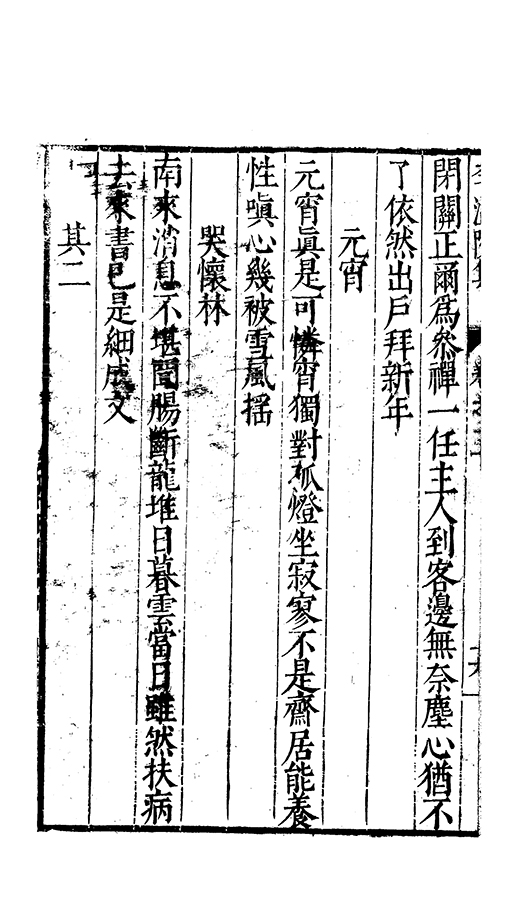 閉關正爾為叅禪一任主人到客邊無奈塵心猶不
了依然出戶拜新年
元宵
元宵眞是可憐宵獨對孤燈坐寂寥不是齋居能養
性嗔心幾被雪風搖
哭懷林
南來消息不堪聞腸斷龍堆日暮雲當日雖然扶病
去來書已是細成文
其二